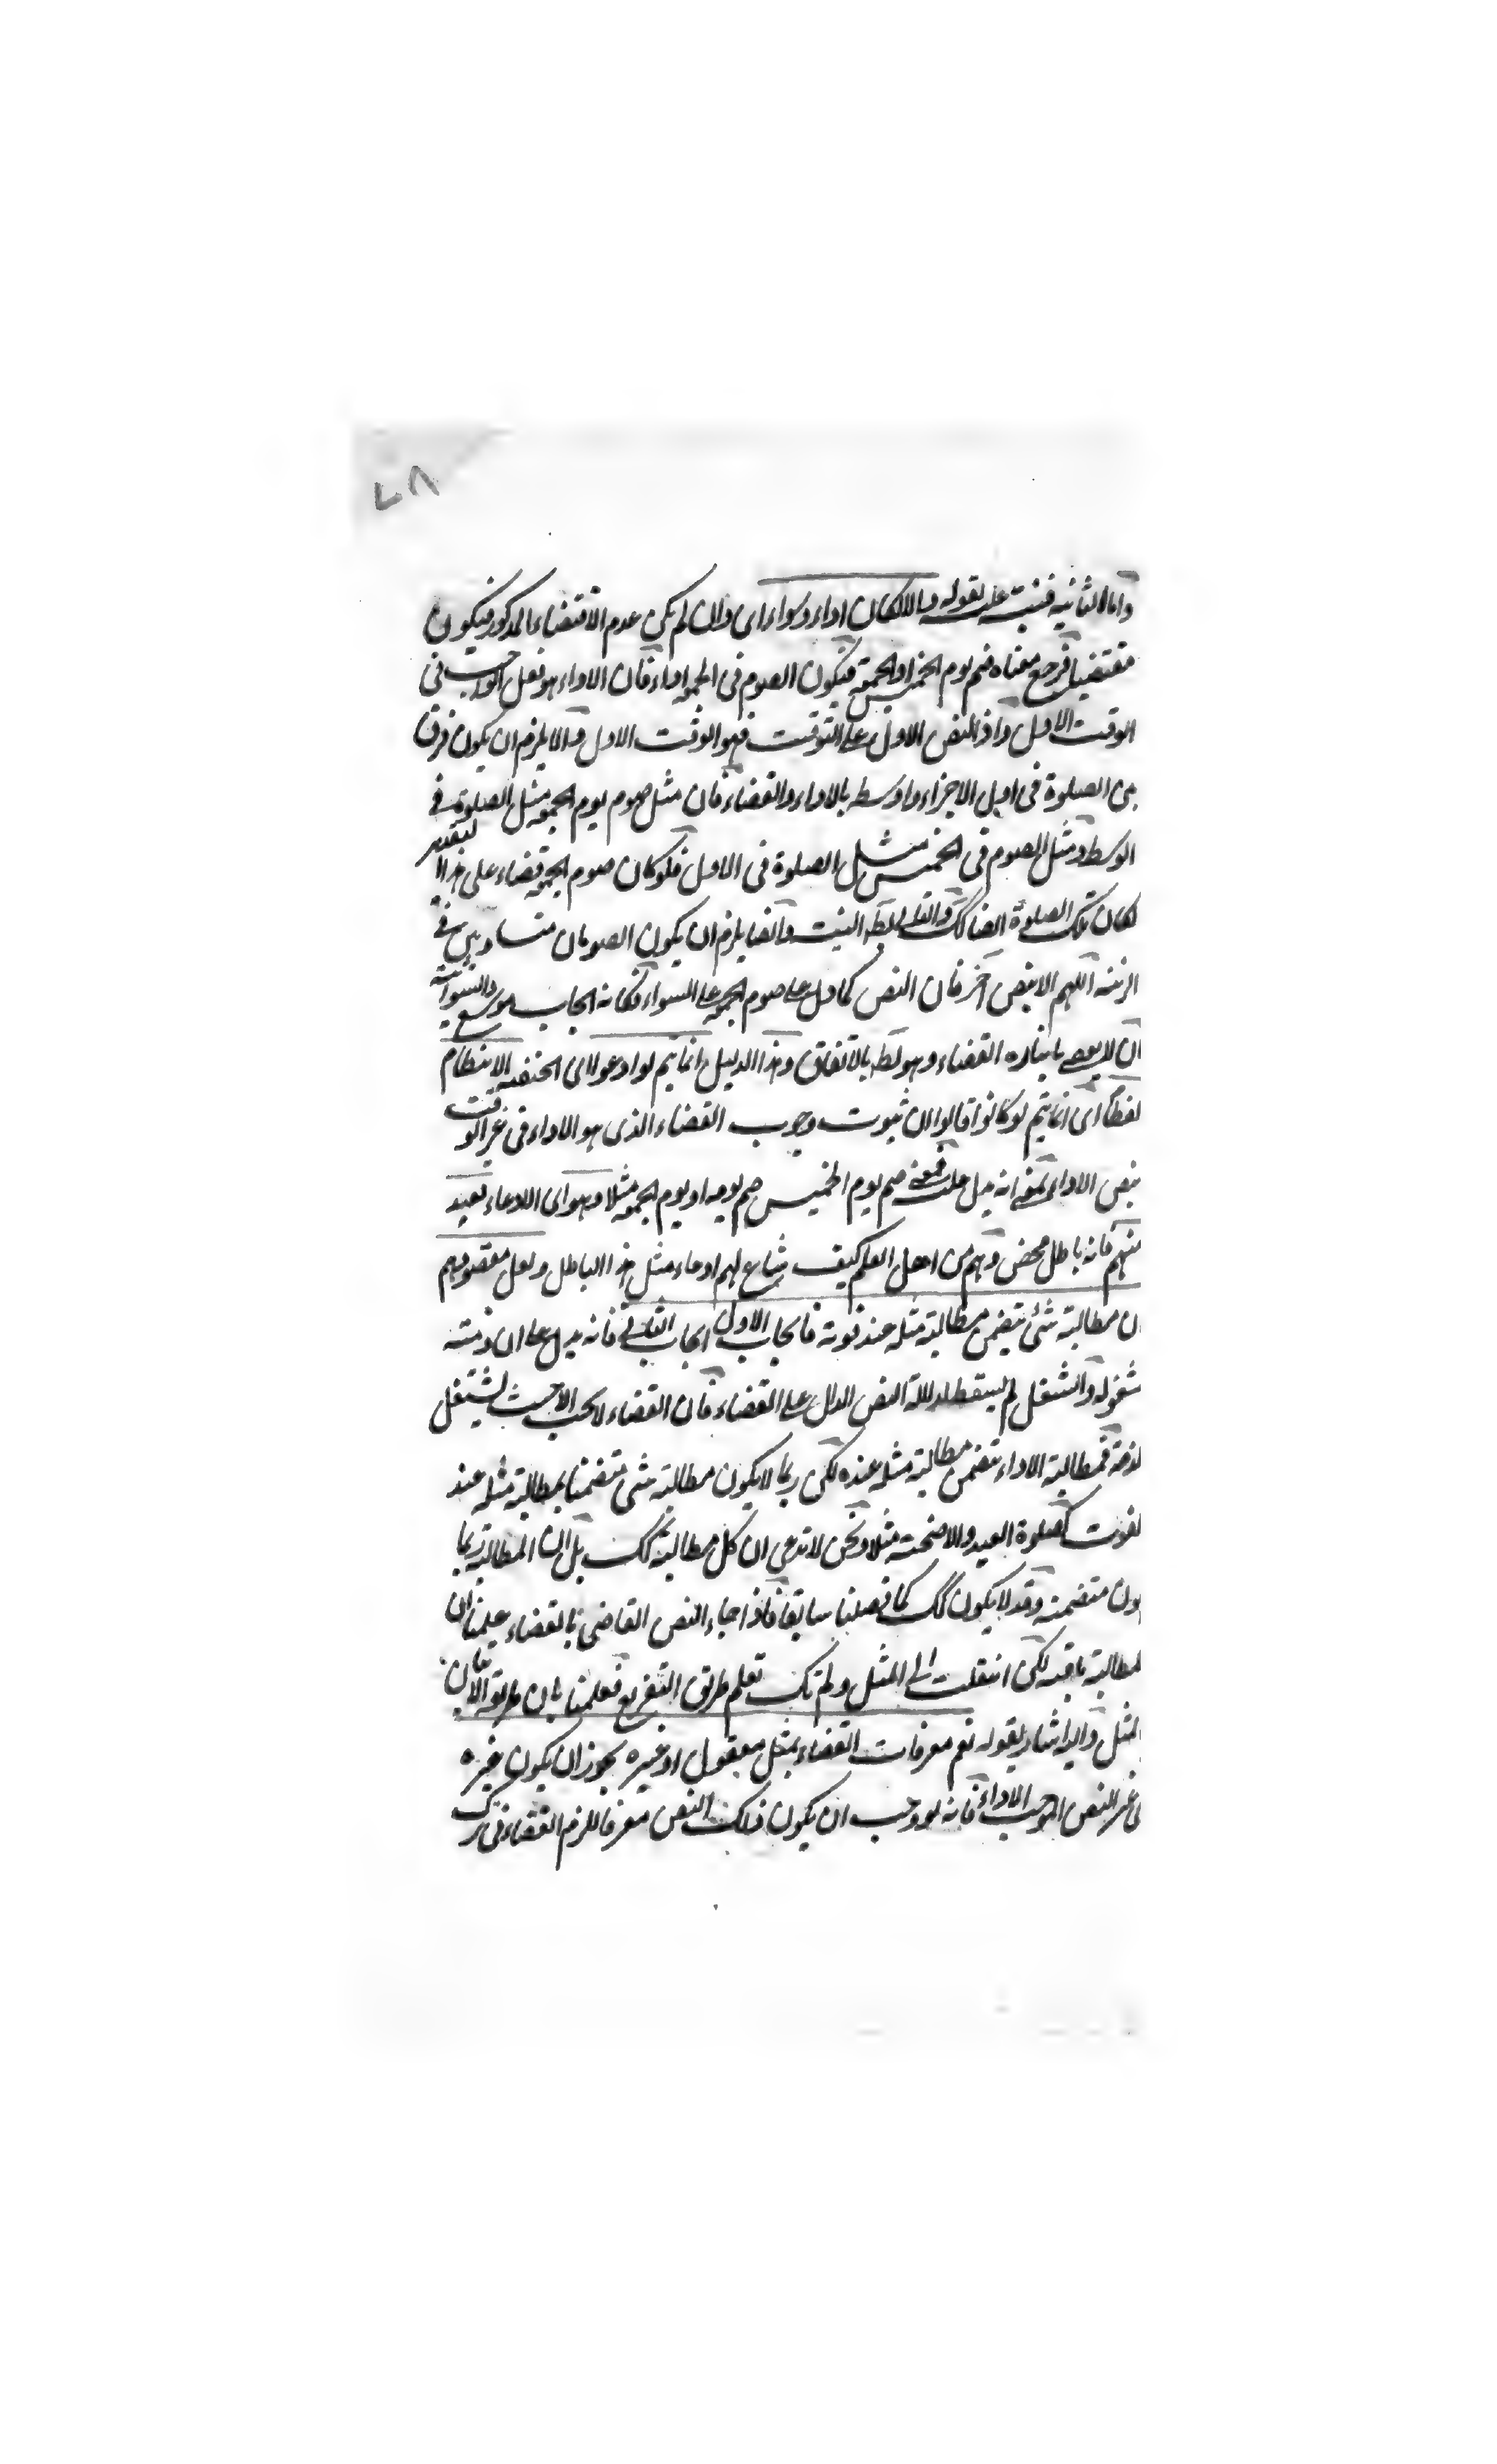 ٧٨
واما الثانية فنبه عليه بقوله والا لكان اداء وسواء اى وان لم يكن عدم الاقتضاء المذكور فيكون
مقتضيا فرجع معناه صم يوم الخميس او الجمعة فيكون الصوم فى الجمعة اداء فان الاداء هو فعل الواجب فى
الوقت الاول واذ النص الاول على التوقيت فهو الوقت الاول والا يلزم ان يكون فرق
بين الصلوة فى اول الاجزاء واوسطه بالاداء والقضاء فان مثل صوم يوم الجمعة مثل الصلوة فى
الوسط ومثل الصوم فى الخميس مثل الصلوة فى الاول فلو كان صوم الجمعة قضاء على هذا التقدير
لكان تلك الصلوة ايضا كك والتالى بط البتة وايضا يلزم ان يكون الصومان متساويين فى
الرتبة اللهم الا بنص آخر فان النص كما دل على صوم الجمعة على السواء فكانه ايجاب موسع والتسوية
ان لا يعصى باتيانه القضاء وهو بط بالاتفاق وهذا الدليل انما يتم لو ادعوا اى الحنفية الانتظام
لفظا اى انما يتم لو كانوا قالوا ان ثبوت وجوب القضاء الذى هو الاداء فى غير الوقت
بنص الاداء بمعنى انه يدل عليه فمعنى صم يوم الخميس صم يومه او يوم الجمعة مثلا وهو اى الادعاء بعيد
منهم فانه باطل محض وهم من اهل العلم كيف شاع لهم ادعاء مثل هذا الباطل ولعل مقصودهم
ان مطالبة شئ يتضمن مطالبة مثله عند فوته فايجاب الاول ايجاب الثانى فانه يدل على ان ذمته
شغوله والشغل لم يسقط لدلالة النص الدال على القضاء فان القضاء لا يجب الا حيث يشتغل
لذمة فمطالبة الاداء يتضمن مطالبة مثله عنده لكن ربما لا يكون مطالبة شئ متضمنا بمطالبة مثله عند
لفوت كصلوة العيد والاضحية مثلا ونحن لا ندعى ان كل مطالبة كك بل ان المطالبة ربما
ـون متضمنه وقد لا يكون كك كما فصلنا سابقا فاذا جاء النص القاضى بالقضاء علمنا ان
لمطالبة باقية لكن انتقلت الى المثل ولم تك تعلم طريق التفريغ فعلمنا بان طريقه الاتيان
المثل واليه اشار بقوله ثم معرفات القضاء بمثل معقول او غيره يجوز ان يكون غيره
ى غير النص الموجب الاداء فانه لو وجب ان يكون ذلك النص معرفا للزم القضاء فى ترك